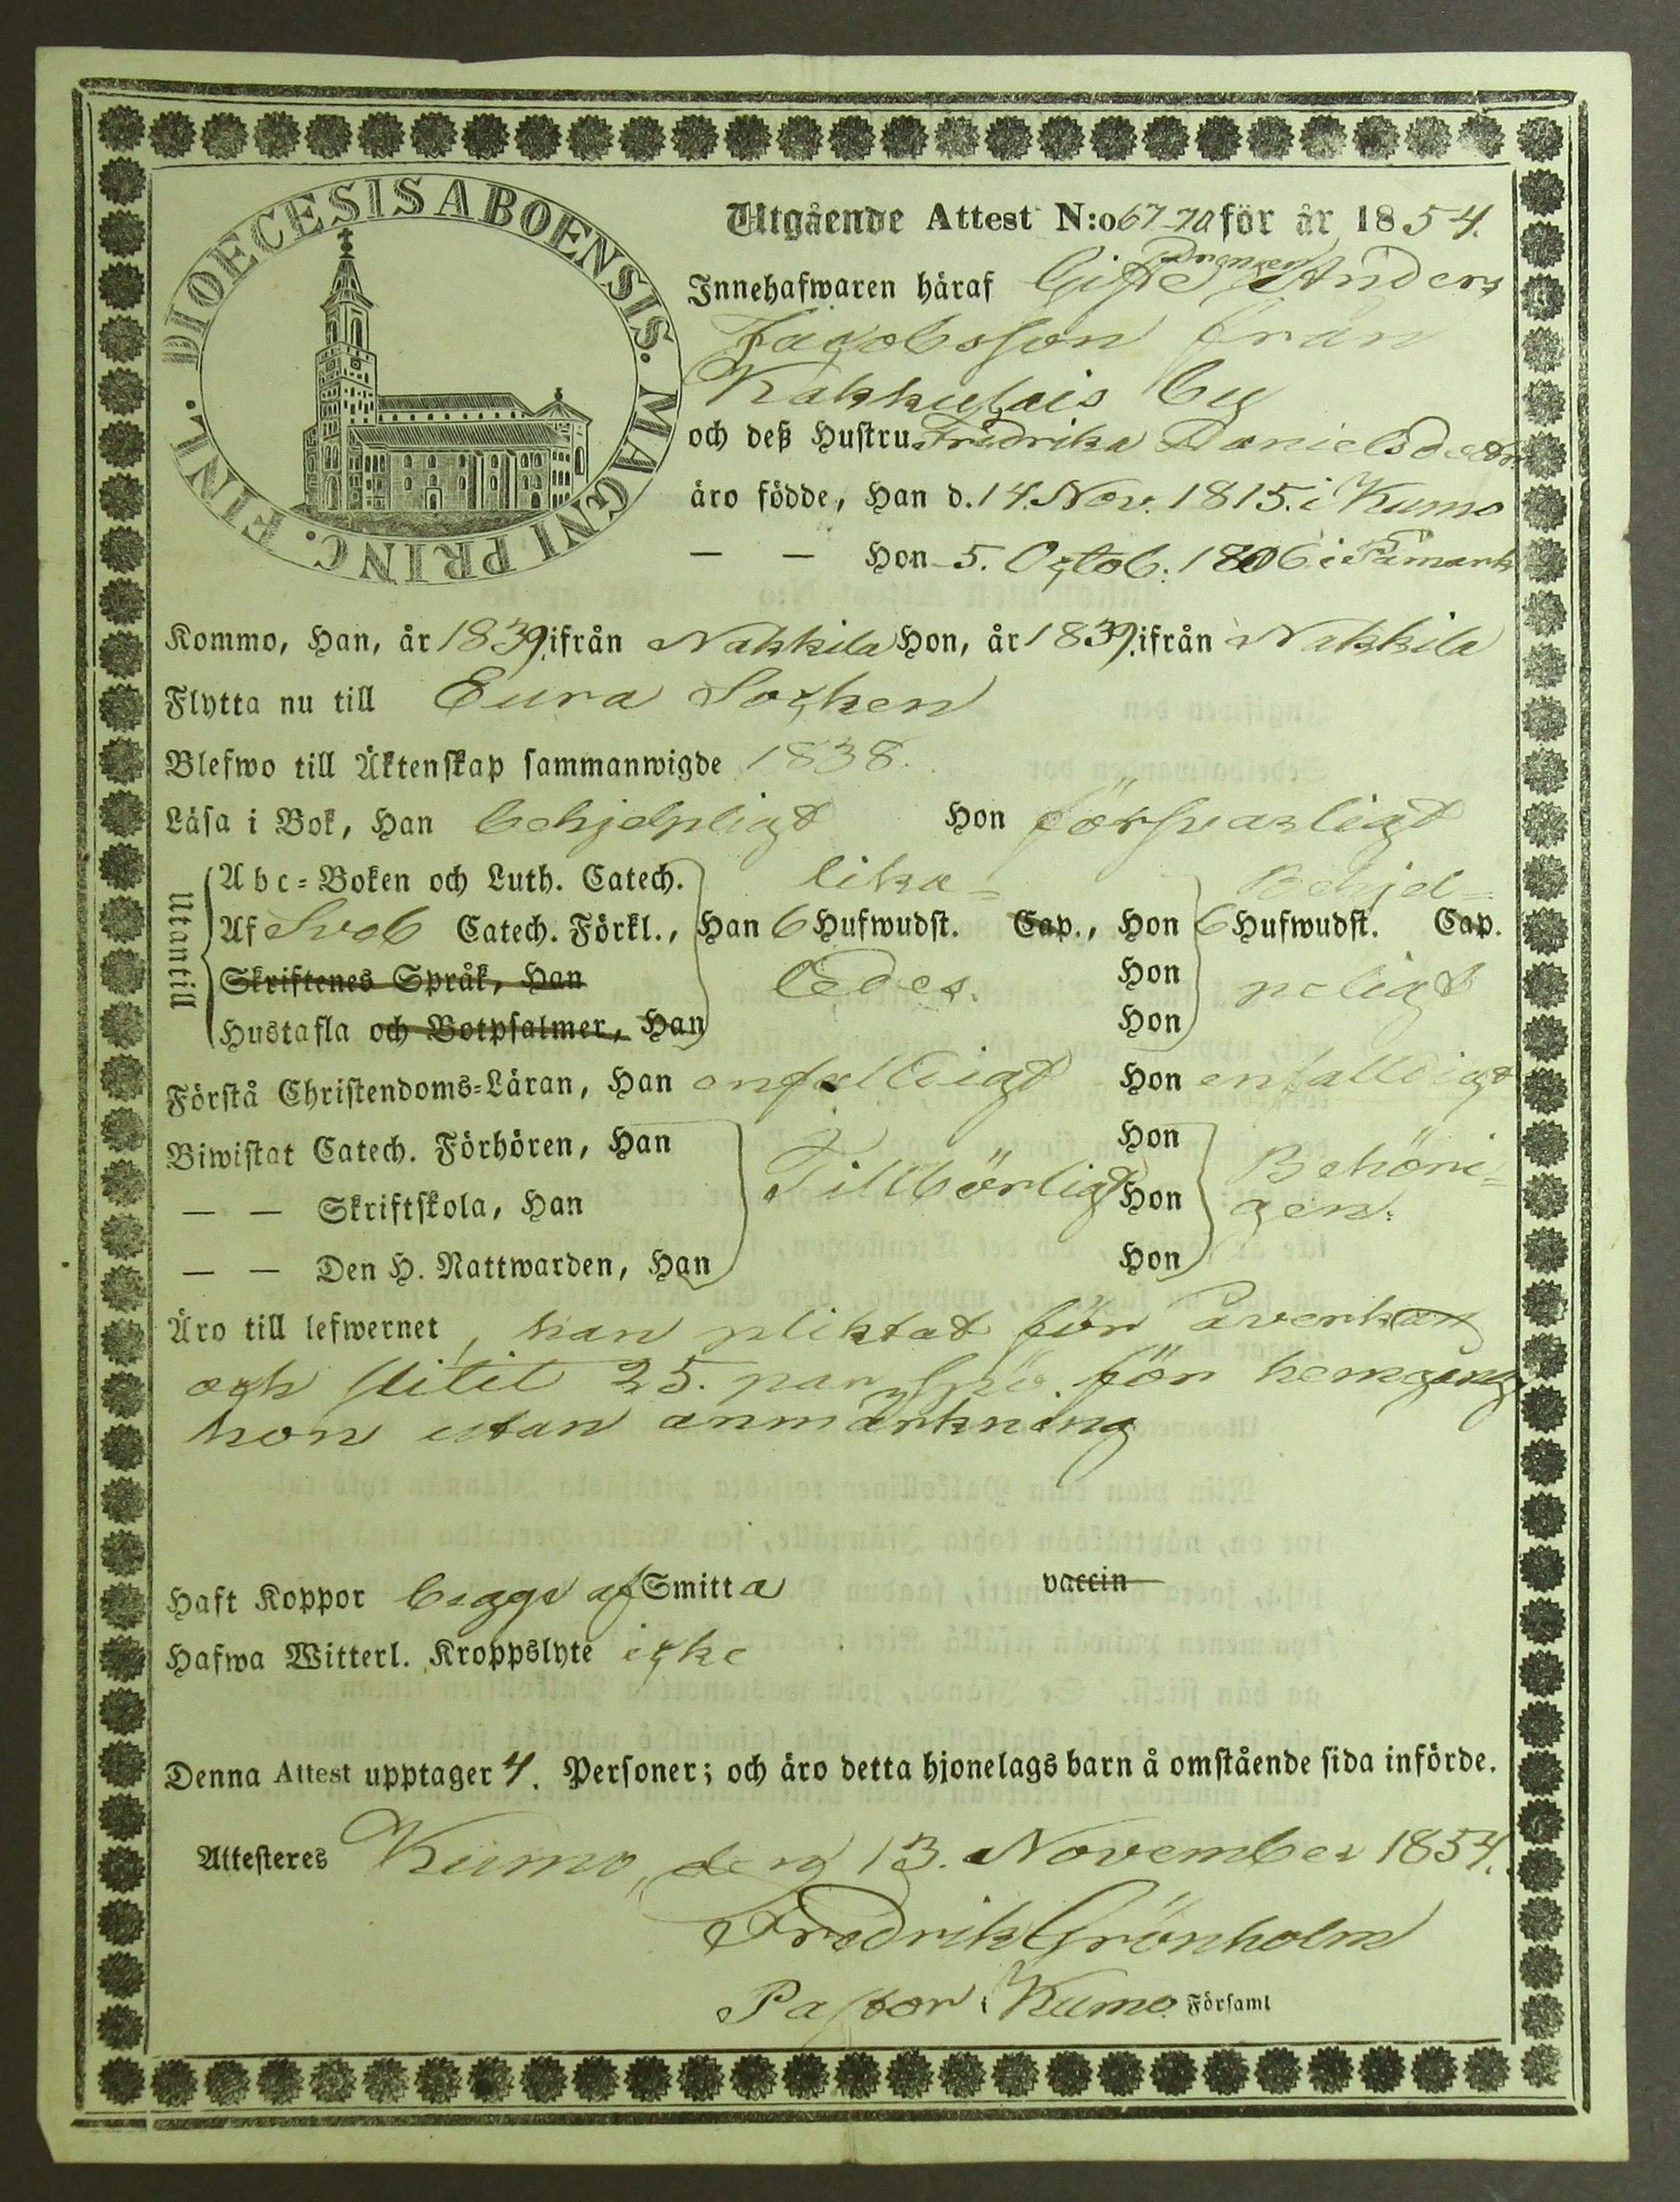 DIOECESIS ABOENSIS. MAGNI PRINC. FINL.
Utgående Attest N:o 67-70 för år 1854.
Drengen
Innehafwaren häraf Gifte Anders
Jacobsson från
Kakkulais by
och deß Hustru Fredrika Danielsdotter
äro födde, Han d. 14. Nov. 1815. i Kumo
— — Hon 5. Octob. 1806 i Påmark
Kommo, Han, år 1839. ifrån Nakkila Hon, år 1839. ifrån Nakkila
Flytta nu till Eura Socken
Blefwo till Äktenskap sammanwigde 1838.
Läsa i Bok, Han behjelpligt Hon försvarligt
Utantill
Abc-Boken och Luth. Catech. lika- Behjel-
Af Sveb Catech. Förkl., Han 6 Hufwudst. Cap., Hon 6 Hufwudst. Cap.
Skriftenes Språk, Han ledes. Hon peligt
Hustafla och Botpsalmer, Han Hon
Förstå Christendoms-Läran, Han enfalldigt Hon enfalldigt
Biwistat Catech. Förhören, Han Hon
— — Skriftskola, Han Tillbörligt Hon Behöri-gen.
— — Den H. Nattwarden, Han Hon
Äro till lefwernet, han pliktat för åverkan
och slitit 25. par spö. för hemgång,
hon utan anmärkning
Haft Koppor begge af Smitta vaccin
Hafwa Witterl. Kroppslyte icke
Denna Attest upptager 4. Personer; och äro detta hjonelags barn å omstående sida införde.
Attesteres Kumo, den 13. November 1854.
Fredrik Grönholm
Pastor i Kumo Församl